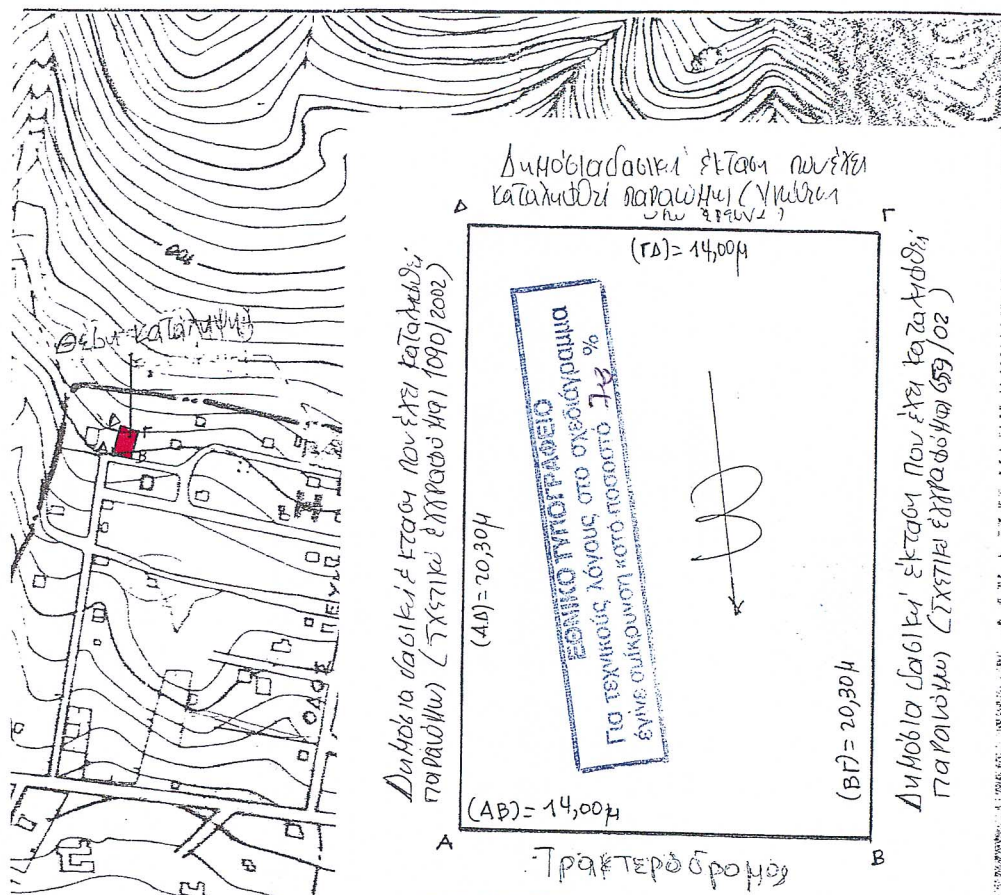 Δημόσια δασική έκταση που έχει
καταληφθεί παράνομα
Δ
Γ
(ΓΔ) = 14,00μ
Δημόσια δασική έκταση που έχει καταληφθεί
παράνομα (Σχετικό έγγραφό μας 1090/2002)
(ΑΔ) = 20,30μ
ΕΘΝΙΚΟ ΤΥΠΟΓΡΑΦΕΙΟ
Για τεχνικούς λόγους στο σχεδιάγραμμα
έγινε σμίκρυνση κατά ποσοστό %
(ΒΓ) = 20,30μ
Δημόσια δασική έκταση που έχει καταληφθεί
παράνομα (Σχετικό έγγραφό μας 659/02)
(ΑΒ) = 14,00μ
Α
Β
Τρακτερόδρομος
Θέση κατάληψης
Δ
Γ
Α
Β
ΟΔΟΣ